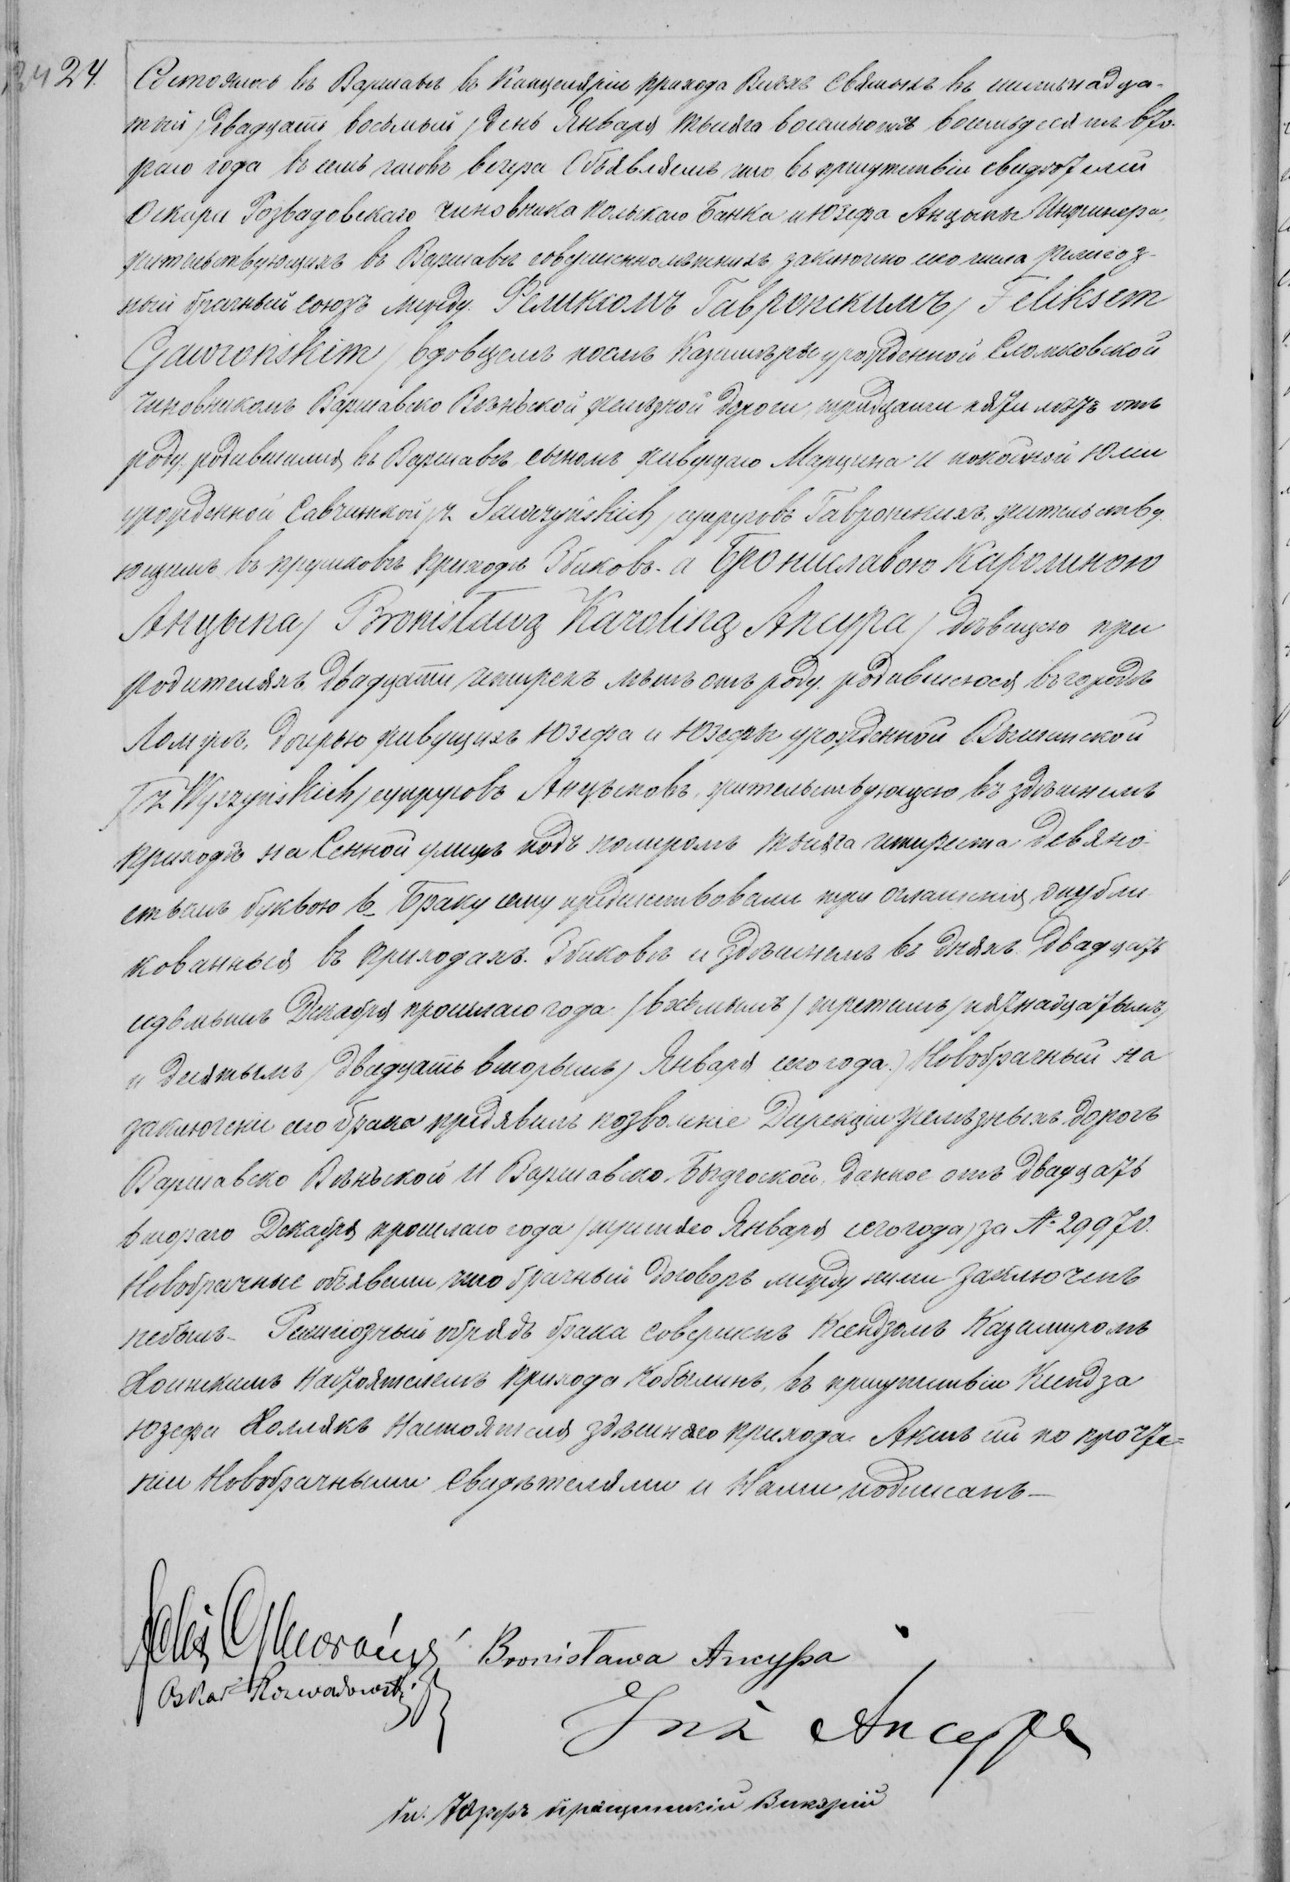 24 24.
Состоялось въ Варшавѣ въ Канцеляріи прихода Всѣхъ Святыхъ въ шестьнадца-
тый /двадцать восьмый/ день Января тысяча восемьсотъ восемьдесятъ вто-
раго года въ семь часовъ вечера Объявляемъ что въ присутствіи свидѣтелей
Оскара Розвадовскаго чиновника польскаго Банка и Юзефа Анцыпы Инженера,
жительствующихъ въ Варшавѣ совершеннолѣтнихъ заключено сего числа религіоз-
ный брачный союзъ между Феликсомъ Гавронскимъ / Feliksem
Gawronskim / вдовцемъ послѣ Казимѣры урожденной Сломковской
чиновникомъ Варшавско Вѣнской желѣзной дороги, тридцати пяти лѣтъ отъ
роду родившимся въ Варшавѣ, сыномъ живущаго Марцина и покойной Юліи
урожденной Савчинской /z Sawczyńskich/ супруговъ Гавронскихъ, жительству-
ющимъ въ прушковѣ прихода Збиковъ- а Брониславою Каролиною
Анцыпа / Bronisławą Karoliną Ancypa / дѣвицею при
родителяхъ двадцати четырехъ лѣтъ отъ роду родившеюся въ городѣ
Ломжѣ, дочерью живущихъ Юзефа и Юзефы урожденной Вышинской
/z Wyszyńskich/ супруговъ Анцыповъ, жительствующею въ здѣшнемъ
приходѣ на Сенной улицѣ подъ номеромъ тысяча четыреста девяно-
ствомъ буквою в_ Браку сему предшествовали три оглашенія, опубли-
кованныя въ приходахъ Збиковъ и здѣшнемъ въ дняхъ двадцать
седьмымъ Декабря прошлаго года /восьмымъ/ третьимъ /пятнадцатымъ/
и десятымъ /двадцать вторымъ/ Января сего года.) Новобрачный на
заключеніе сего брака предявилъ позволеніе Дирекціи желѣзныхъ дорогъ
Варшавско Вѣнской и Варшавско Быдгоской данное отъ двадцать
втораго Декабря прошлаго года /третьяго Января сего года/ за №
Новобрачные объявили что брачный договоръ между ними заключенъ
небылъ- Религіозный обрядъ брака совершенъ Ксендзомъ Казимиромъ
Хоинскимъ Настоятелемъ прихода Кобылинъ, въ присутствіи Ксендза
Юзефа Холлякъ Настоятеля здѣшняго прихода. Актъ сей по прочте-
ніи Новобрачными Свидѣтелями и Нами подписанъ-
Gawroński Bronisława Ancypa
Oskar Rozwadowski
Ancypa
Кс. Юзефъ Викарій